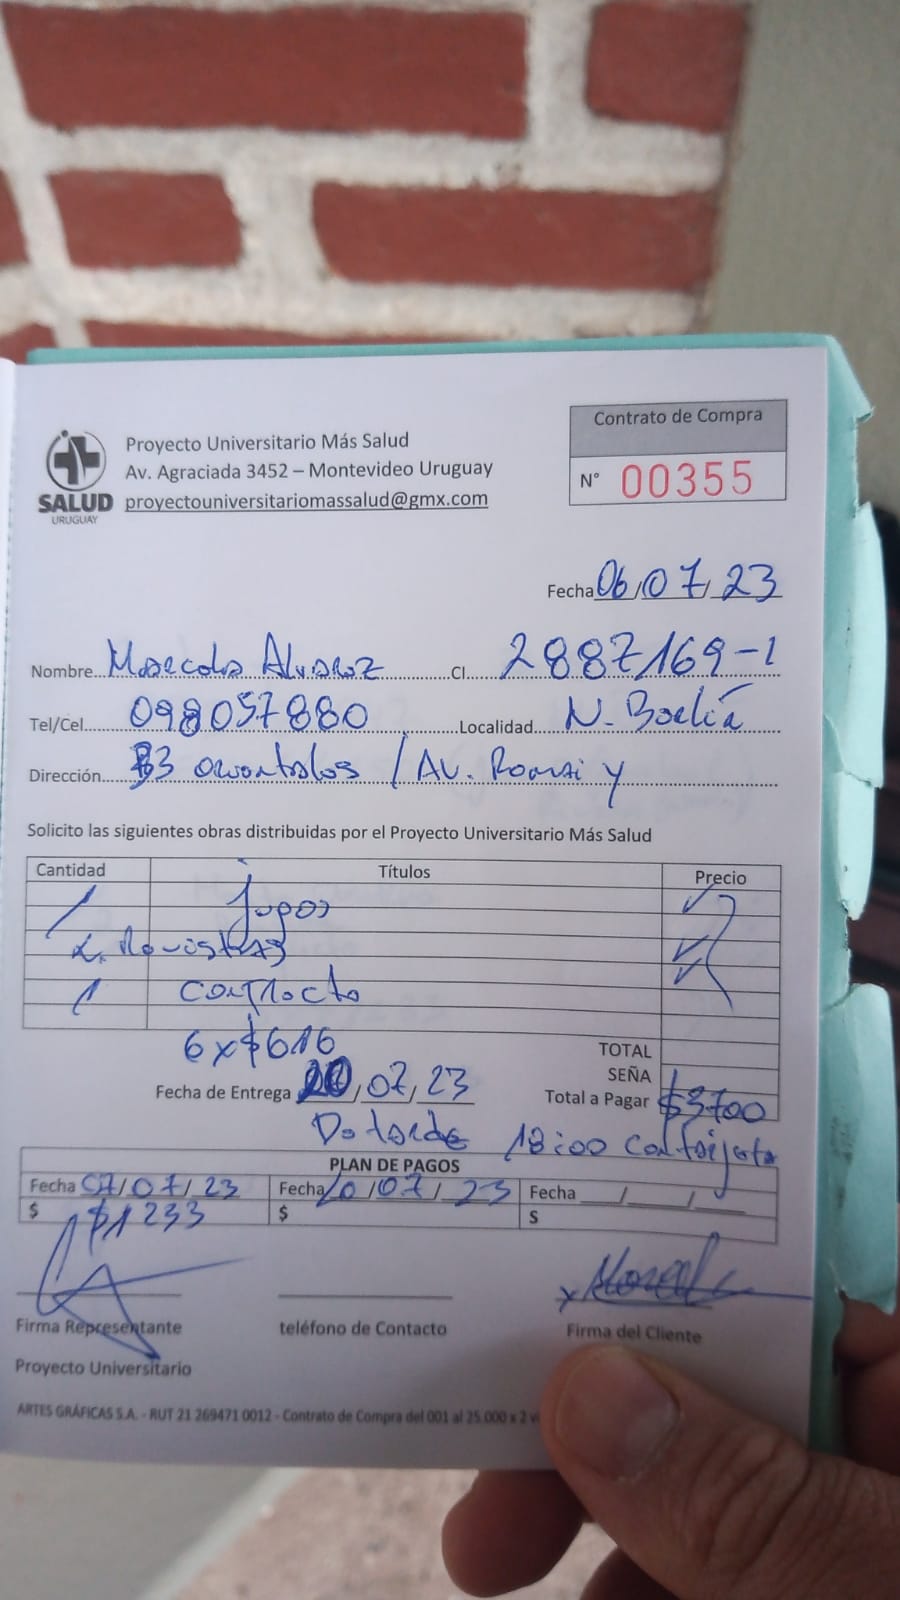 Proyecto Universitario Más Salud
Av. Agraciada 3452 – Montevideo Uruguay
SALUD
URUGUAY
proyectouniversitariomassalud@gmx.com
Contrato de Compra
N° 00355
Fecha 06/07/23
Nombre Alvarez CI 2887169-1
Tel/Cel 098057880 Localidad N.
Dirección 33 / Av.
Solicito las siguientes obras distribuidas por el Proyecto Universitario Más Salud
Cantidad Títulos Precio
1 Jugos
1
6x$616
TOTAL
SEÑA
Fecha de Entrega 20/07/23 Total a Pagar $3700
18:00
PLAN DE PAGOS
Fecha 07/07/23 Fecha 20/07/23 Fecha __/__/__
$ $1233 $ $
Firma Representante teléfono de Contacto Firma del Cliente
Proyecto Universitario
ARTES GRÁFICAS S.A. - RUT 21 269471 0012 - Contrato de Compra del 001 al 25.000 x 2